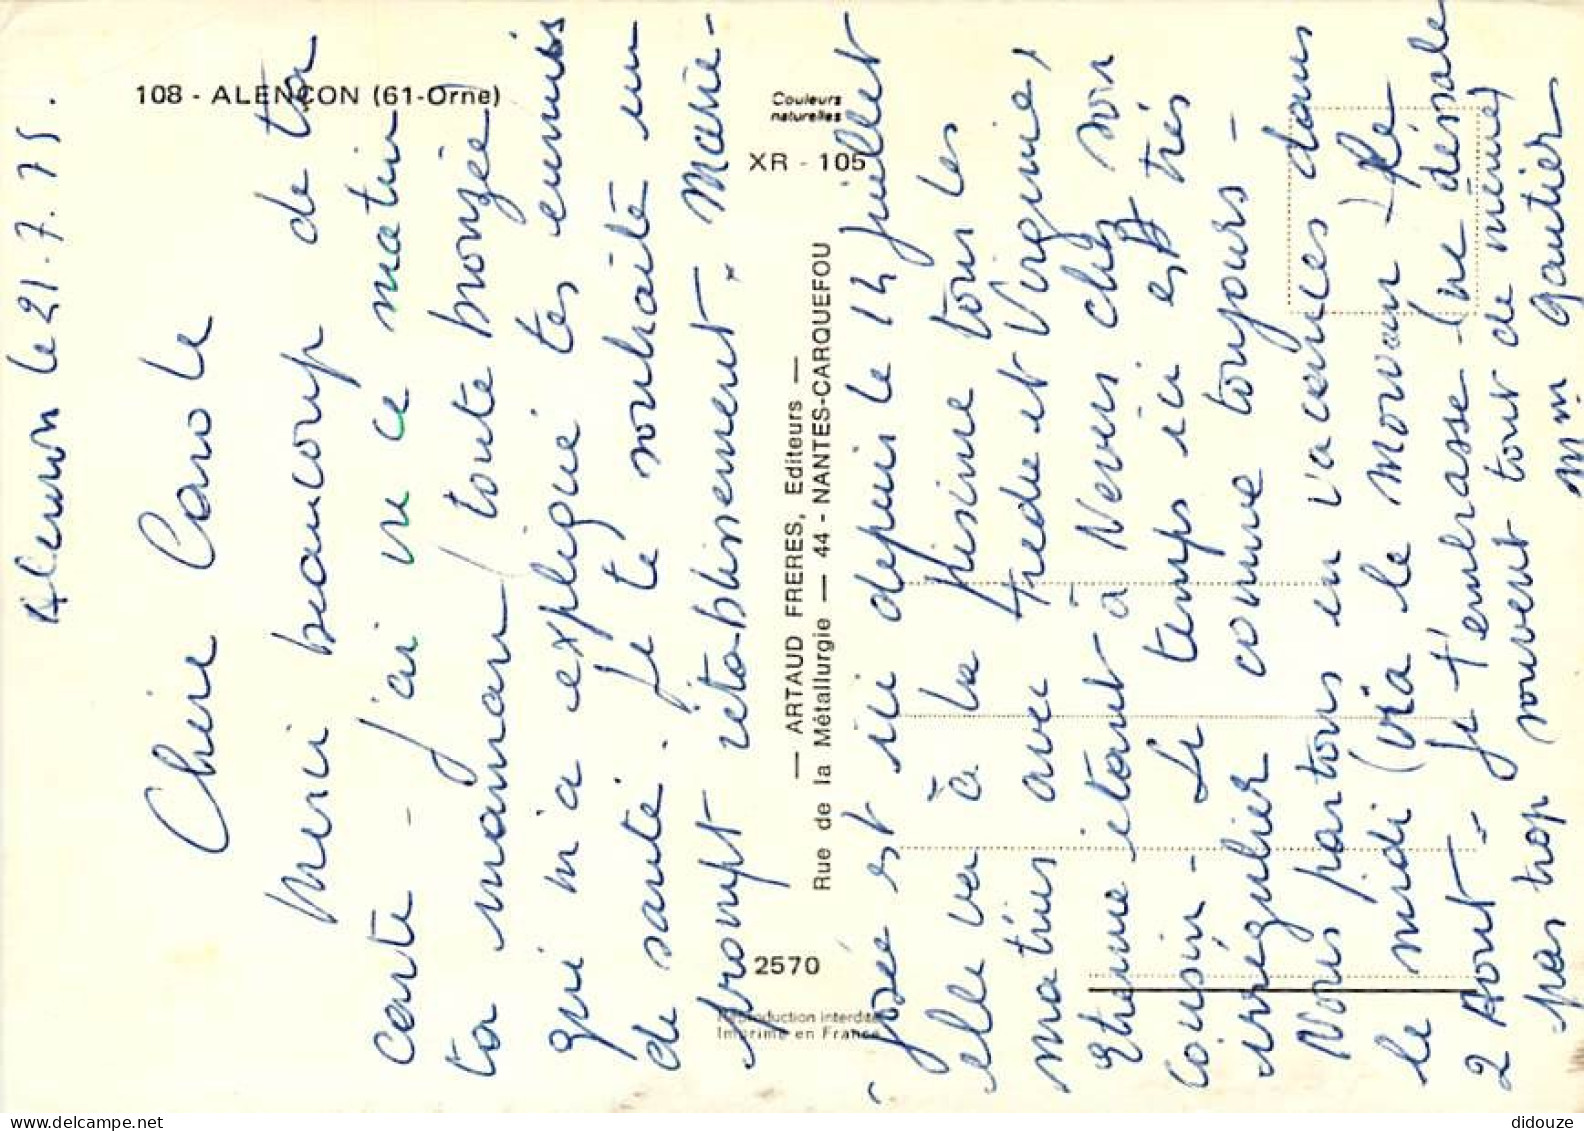 108 - ALENÇON (61-Orne)
Couleurs
naturelles
XR - 105
— ARTAUD FRERES, Editeurs —
Rue de la Métallurgie — 44 - NANTES-CARQUEFOU
2570
Reproduction interdite
Imprimé en France
Alençon le 21.7.75.
Chère Carole
Merci beaucoup de ta
carte - j'ai vu ce matin
ta maman (toute bronzée)
qui m'a expliqué tes ennuis
de santé. Je te souhaite un
prompt rétablissement. Marie-
José est ici depuis le 14 Juillet
elle va à la piscine tous les
matins avec Frede et Virginie,
Etienne étant à Nevers chez son
cousin - Le temps ici est très
irrégulier comme toujours -
Nous partons en vacances dans
le midi (via le Morvan) le
2 Aout - Je t'embrasse (ne désale
pas trop souvent tout de même)
Mm Gautier
didouze